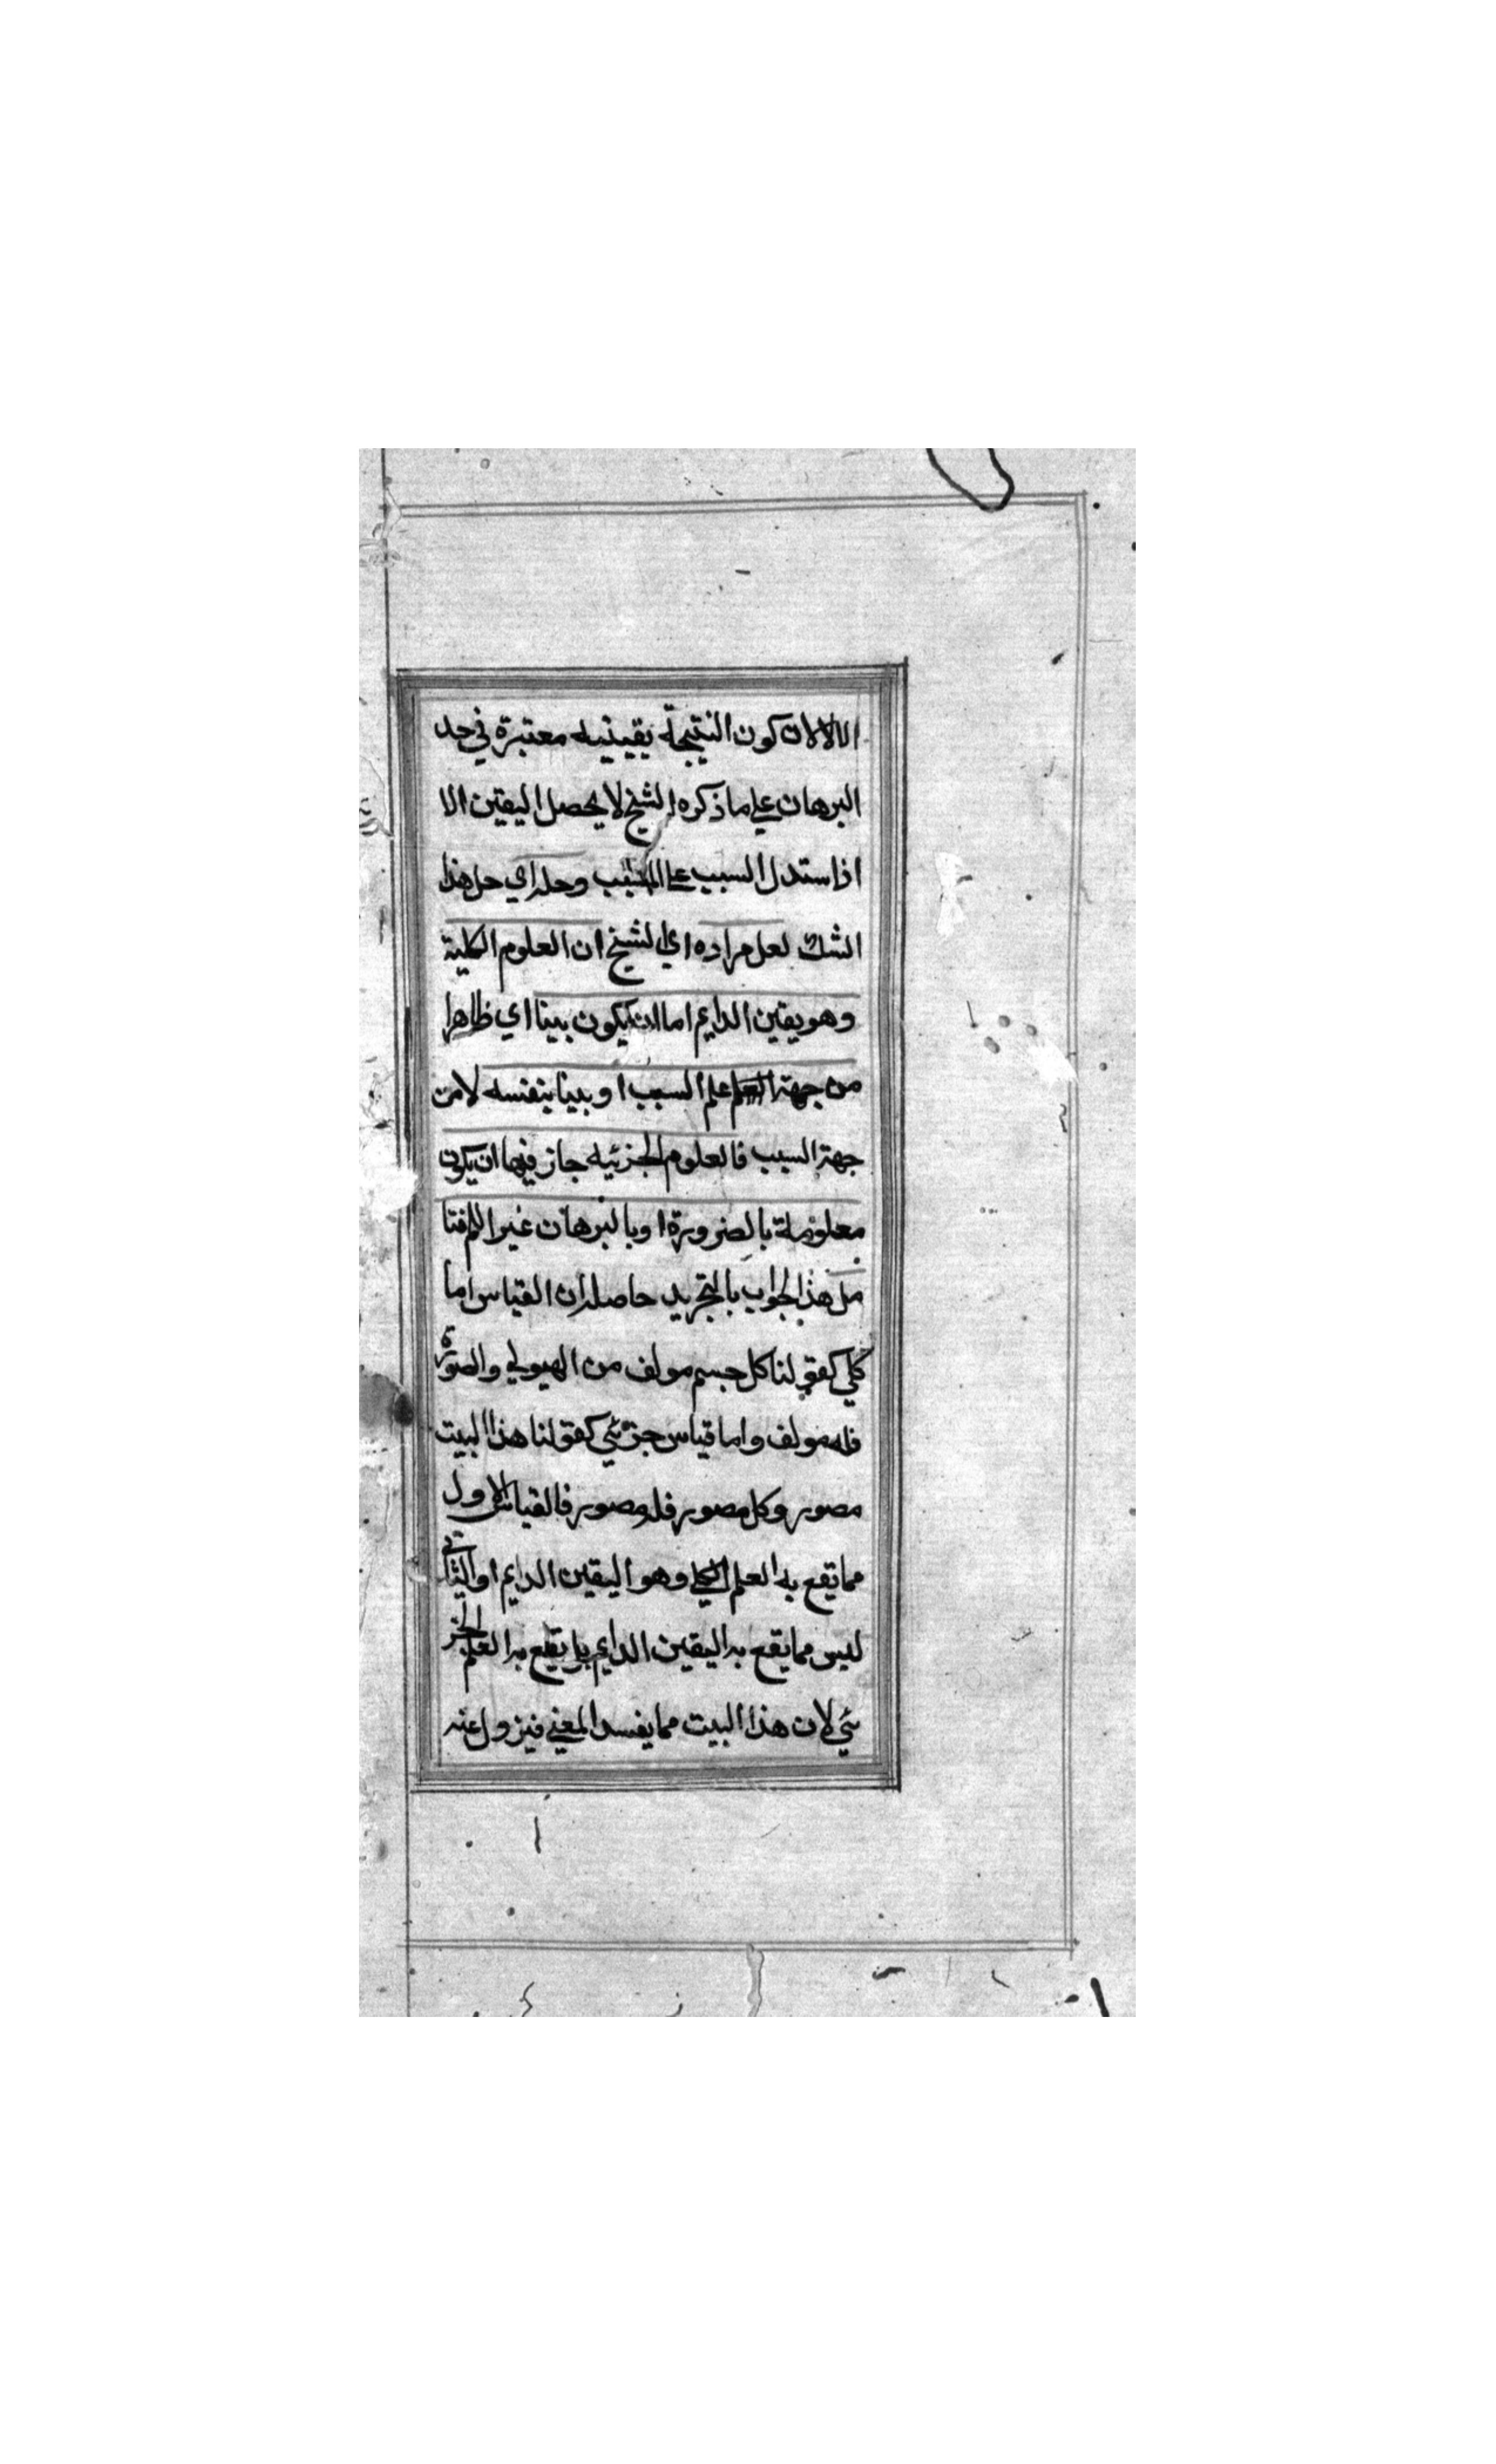 الا لان كون النتيجة يقينيه معتبرة في حد
البرهان علي ما ذكره الشيخ لا يحصل اليقين الا
اذا ستدل السبب علي المسبب وحله اي حل هذا
الشك لعل مراده اي الشيخ ان العلوم الكلية
وهو يقين الدايم اما ان يكون بينا اي ظاهرا
من جهة العلم علم السبب او بينا بنفسه لا من
جهة السبب فالعلوم الجزئيه جاز فيها ان يكون
معلومة بالضرورة او بالبرهان غير اللم فتا
مل هذا الجواب بالتجريد حاصله ان القياس اما
كلي كقولنا كل جسم مولف من الهيولي والصورة
فله مولف واما قياس جزئي كقولنا هذا البيت
مصور وكل مصور فله مصور فالقياس الاول
مما يقع به العلم الكلي وهو اليقين الدايم او الثاني
ليس مما يقع به اليقين الدايم بل يقع به العلم الجز
ئي لان هذا البيت مما يفسد المعني فيزول عنه